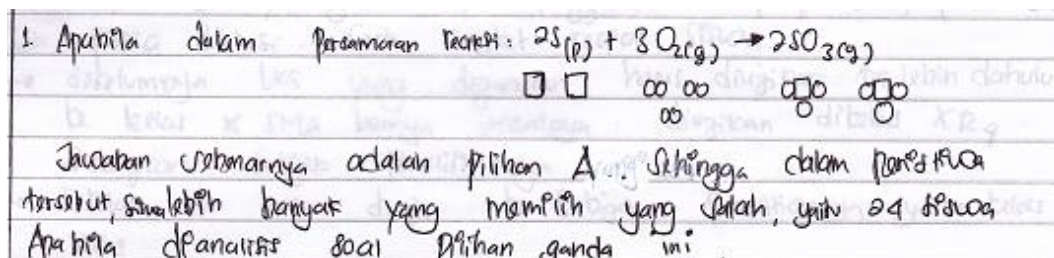 1. Apabila dalam Persamaan reaksi: 2S(p) + 3O2(g) → 2SO3(g)
Jawaban sebenarnya adalah pilihan A. Sehingga dalam peristiwa
tersebut, siswa lebih banyak yang memilih yang salah, yaitu 24 siswa,
Apabila dianalisis soal pilihan ganda ini